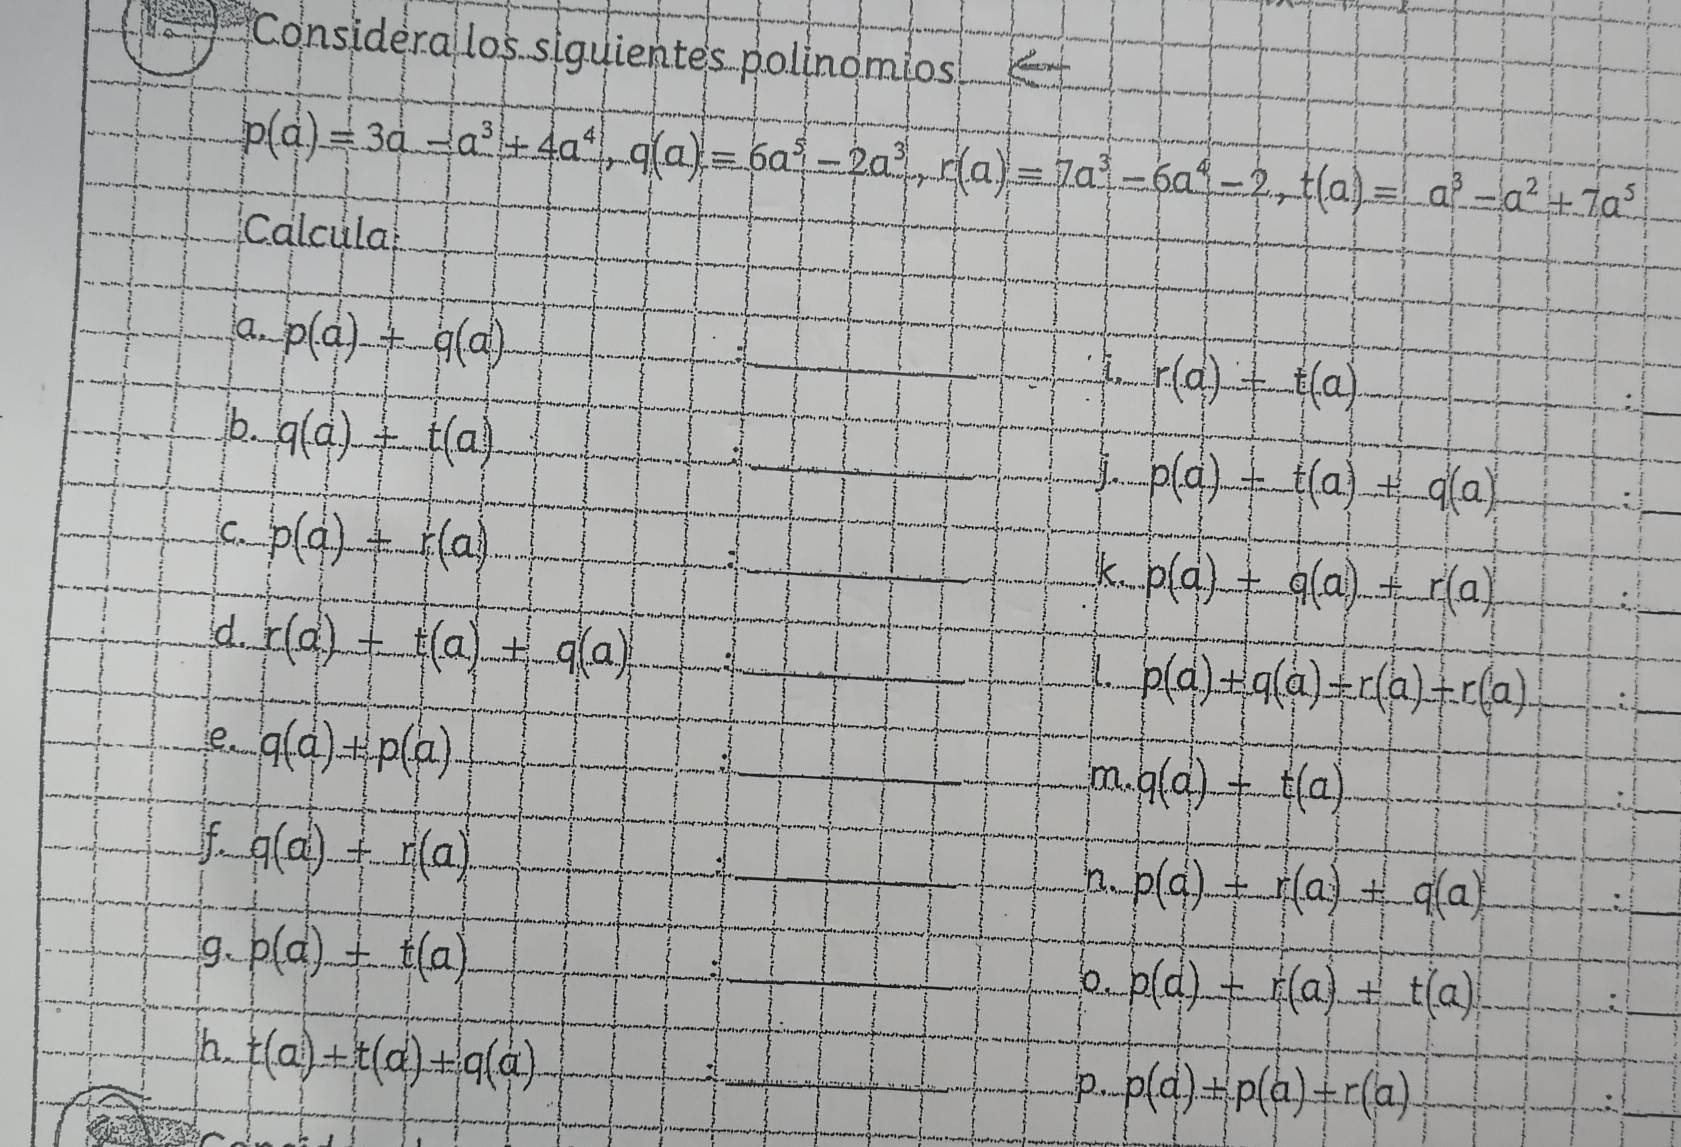 1.- Considera los siguientes polinomios
p(a) = 3a - a³ + 4a⁴, q(a) = 6a⁵ - 2a³, r(a) = 7a³ - 6a⁴ - 2, t(a) = a³ - a² + 7a⁵
Calcula:
a. p(a) + q(a) :
b. q(a) + t(a) :
c. p(a) + r(a) :
d. r(a) + t(a) + q(a) :
e. q(a)+p(a) :
f. q(a) + r(a) :
g. p(a) + t(a) :
h. t(a)+t(a)+q(a) :
i. r(a) + t(a) :
j. p(a) + t(a) + q(a) :
k. p(a) + q(a) + r(a) :
l. p(a)+q(a)+r(a)+r(a) :
m. q(a) + t(a) :
n. p(a) + r(a) + q(a) :
o. p(a) + r(a) + t(a) :
p. p(a)+p(a)+r(a) :